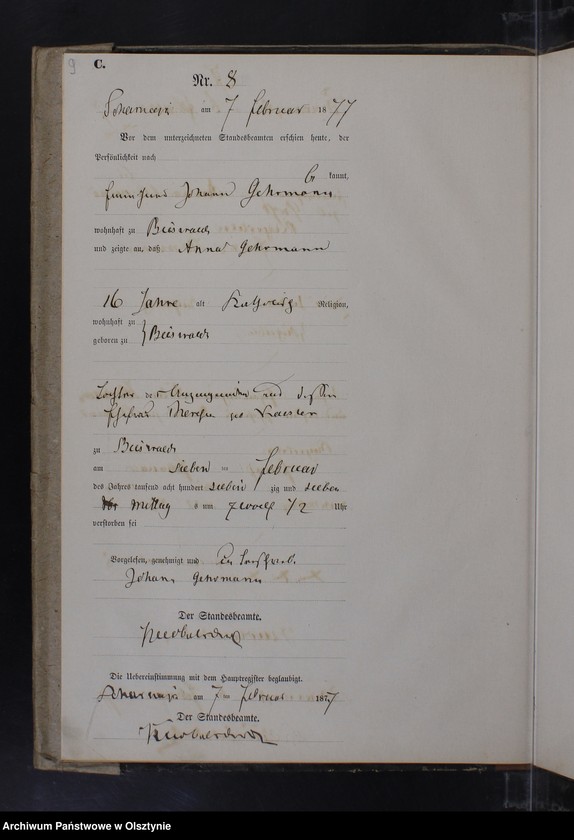 9
C.
Nr. 8
am 7 Februar 1877
Vor dem unterzeichneten Standesbeamten erschien heute, der
Persönlichkeit nach
be kannt,
Johann Gehrmann
wohnhaft zu Beiswalde
und zeigte an, daß Anna Gehrmann
16 Jahre alt Katholisch Religion,
wohnhaft zu
geboren zu } Beiswalde
Tochter des Anzeigenden und dessen
Ehefrau Therese geb
zu Beiswalde
am sieben ten Februar
des Jahres tausend acht hundert sieben zig und sieben
Mittag s um zwoelf 1/2 Uhr
verstorben sei
Vorgelesen, genehmigt und unterschrieb.
Johann Gehrmann
Der Standesbeamte.
Die Uebereinstimmung mit dem Hauptregister beglaubigt.
am 7 ten Februar 1877
Der Standesbeamte.
Archiwum Państwowe w Olsztynie